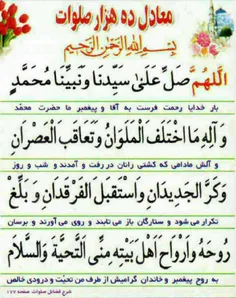 معادل ده هزار صلوات
بِسْمِ اللهِ الرَّحْمٰنِ الرَّحيمِ
اَللّهُمَّ صَلِّ عَلىٰ سَيِّدِنا وَنَبِيِّنا مُحَمَّدٍ
بار خدایا رحمت فرست به آقا و پیغمبر ما حضرت محمد
وَ آلِهِ مَا اخْتَلَفَ الْمَلَوانِ وَتَعاقَبَ الْعَصْرانِ
و آلش مادامی که کشتی رانان در رفت و آمدند و شب و روز
وَكَرَّ الْجَديدانِ وَاسْتَقْبَلَ الْفَرْقَدانِ وَ بَلِّغْ
تکرار می شود و ستارگان باز می تابند و روی می آورند و برسان
رُوحَهُ وَاَرْواحَ اَهْلِ بَيْتِهِ مِنِّى التَّحِيَّةَ وَالسَّلامَ
به روح پیغمبر و خاندان گرامیش از طرف من تحیت و درودی خالص
شرح فضائل صلوات صفحه ۱۷۷